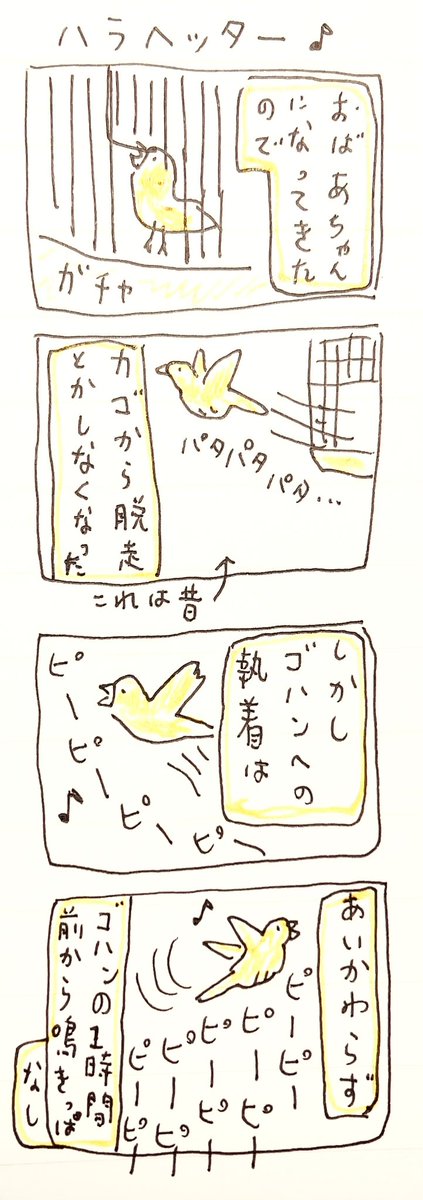 ハラヘッター♪
おばあちゃん
になってきた
ので
ガチャ
カゴから脱走
とかしなくなった
パタパタパタ…
これは昔
しかし
ゴハンへの
執着は
ピーピーピーピー
♪
あいかわらず
♪
ピーピー
ピーピ
ピーピー
ピーピー
ピーピー
ゴハンの1時間
前から鳴きっぱ
なし